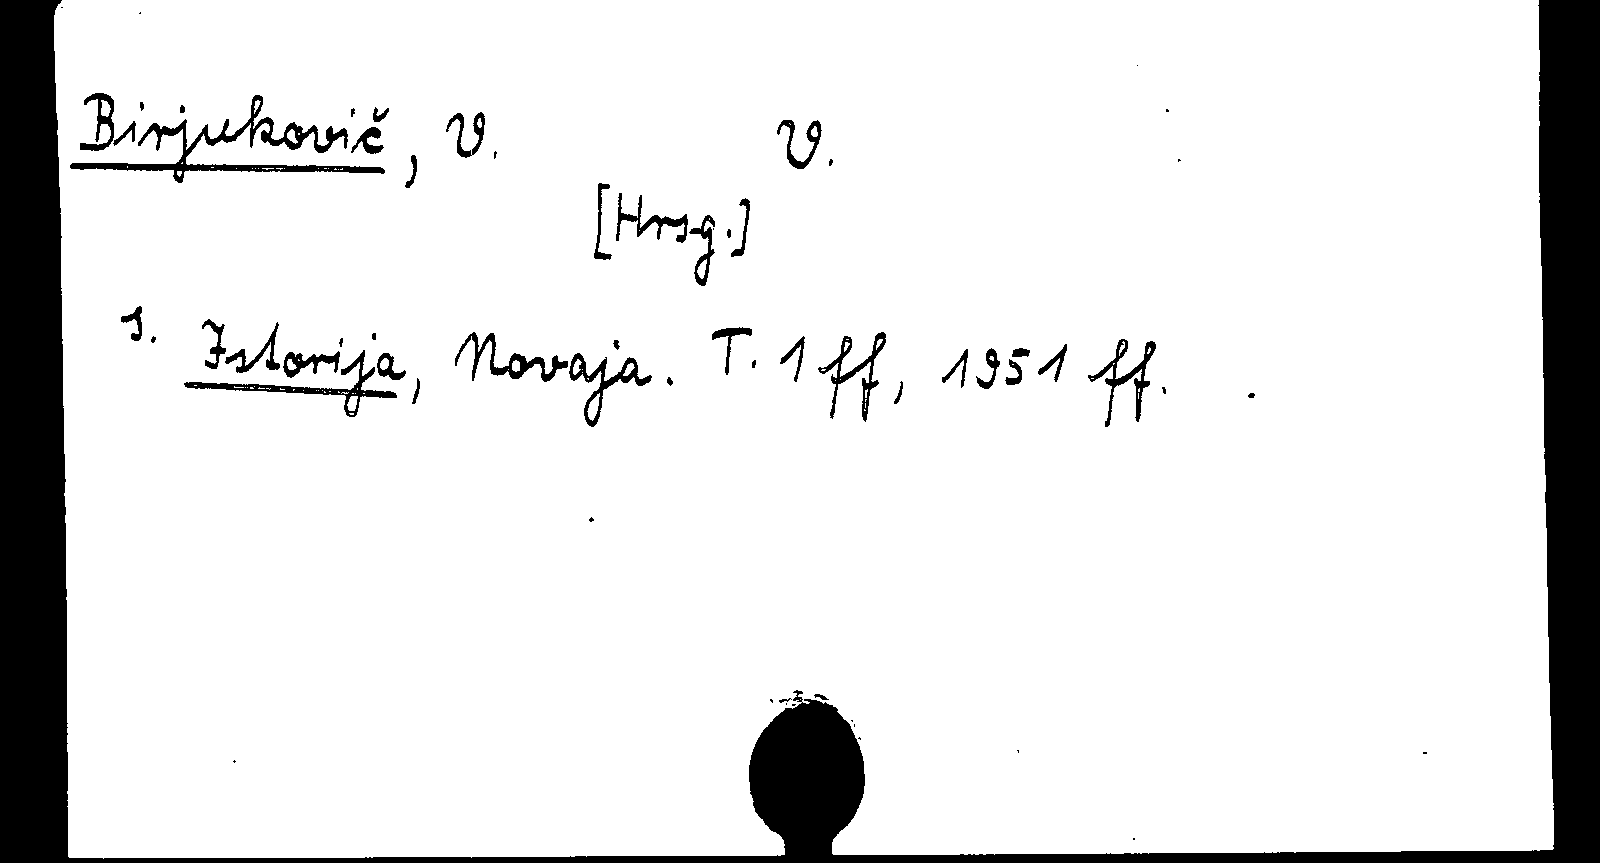 Birjukovič, V. V.
[Hrsg.]
s. Istorija, Novaja. T. 1 ff, 1951 ff.